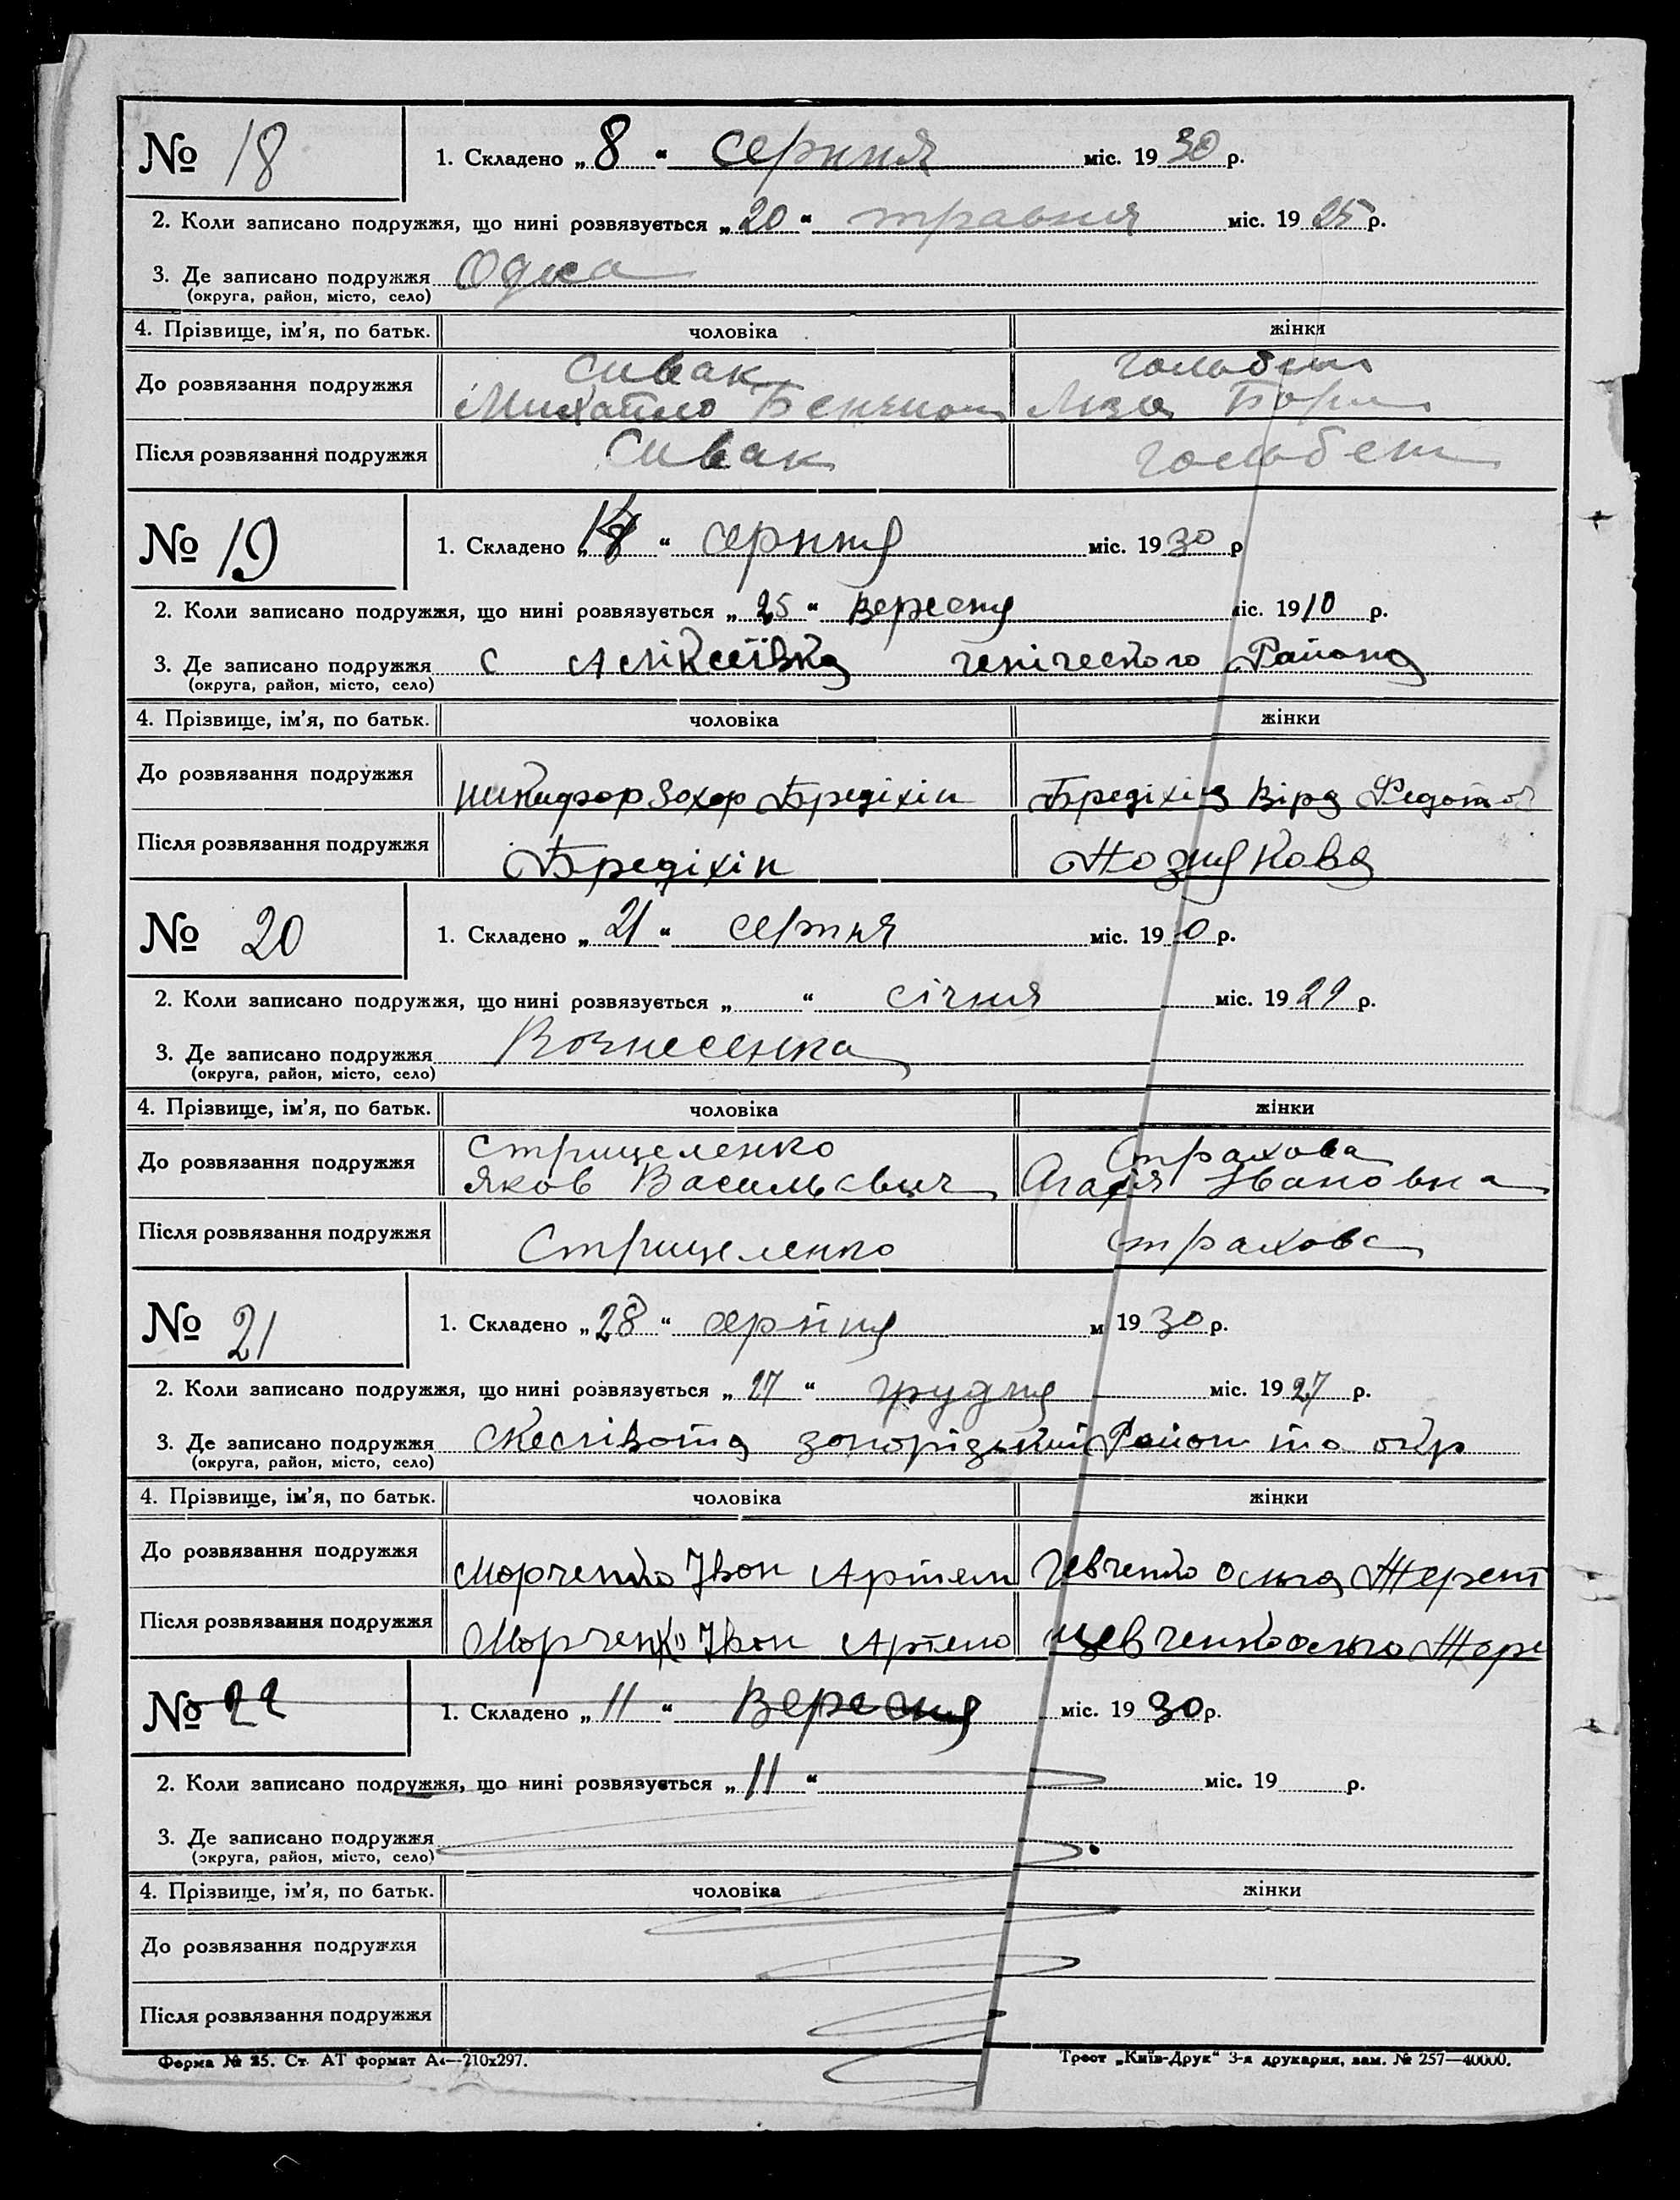 № 18
1. Складено „8“ серпня міс. 1930 р.
2. Коли записано подружжя, що нині розвязується „20“ травня міс. 1925 р.
3. Де записано подружжя Одеса
(округа, район, місто, село)
4. Прізвище, ім'я, по батьк. чоловіка жінки
Сивак
До розвязання подружжя Михайло Ліза
Після розвязання подружжя Сивак Гольбен
№ 19
1. Складено „ “ серпня міс. 1930 р
2. Коли записано подружжя, що нині розвязується „25“ Вересня міс. 1910 р.
3. Де записано подружжя с Аліксеївка генічеського Району
(округа, район, місто, село)
4. Прізвище, ім'я, по батьк. чоловіка жінки
До розвязання подружжя никифор Зохар Бредіхін Бредіхіна Віра Федотов
Після розвязання подружжя Бредіхін
№ 20
1. Складено „21“ серпня міс. 19 0 р.
2. Коли записано подружжя, що нині розвязується „ “ січня міс. 1929 р.
3. Де записано подружжя Вознесенка
(округа, район, місто, село)
4. Прізвище, ім'я, по батьк. чоловіка жінки
Стрицеленко Страхова
До розвязання подружжя Яков Васильевич Агафія Івановна
Після розвязання подружжя Стрицеленко Страхова
№ 21
1. Складено „28“ серпня м 1930 р.
2. Коли записано подружжя, що нині розвязується „27“ грудня міс. 1927 р.
3. Де записано подружжя запорізький Район та окр
(округа, район, місто, село)
4. Прізвище, ім'я, по батьк. чоловіка жінки
До розвязання подружжя Морченко Івон Артем Ольга Терент
Після розвязання подружжя Морченко Івон Артемо шевченко ольга Тере
№ 22
1. Складено „11“ Вересня міс. 1930 р.
2. Коли записано подружжя, що нині розвязується „11“ міс. 19 р.
3. Де записано подружжя
(округа, район, місто, село)
4. Прізвище, ім'я, по батьк. чоловіка жінки
До розвязання подружжя
Після розвязання подружжя
Форма № 25. Ст. АТ формат А4—210х297. Трест „Київ-Друк“ 3-я друкарня, зам. № 257—40000.